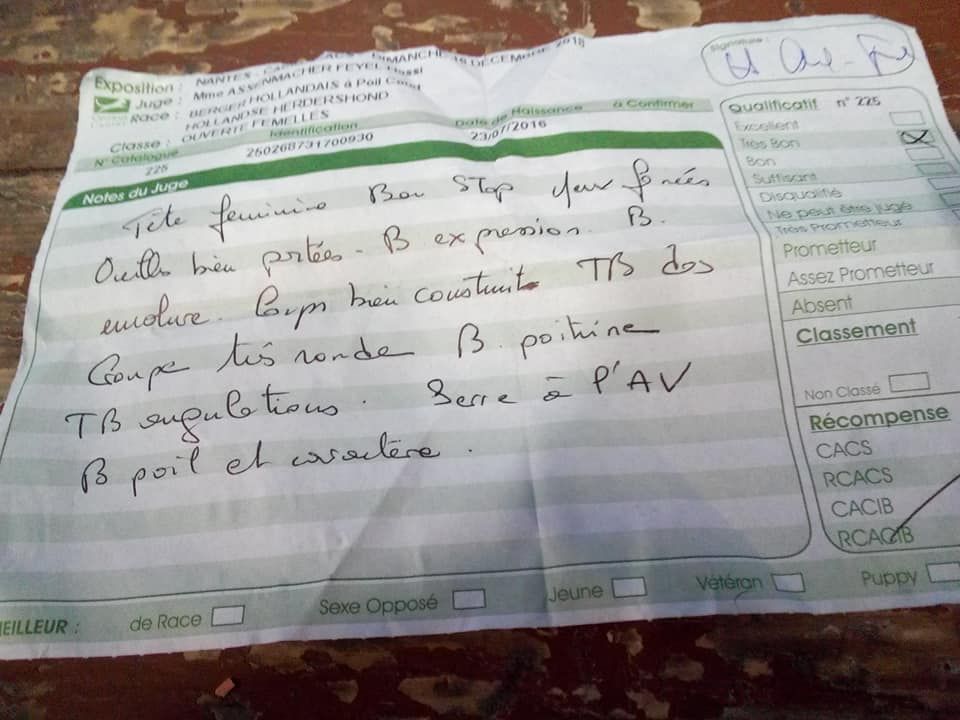 Exposition : NANTES - CACS - DIMANCHE 16 DECEMBRE 2018
Juge : Mme ASSENMACHER FEYEL
Race : BERGER HOLLANDAIS à Poil Court
HOLLANDSE HERDERSHOND
Classe : OUVERTE FEMELLES
N° Catalogue Identification Date de Naissance à Confirmer
225 250268731700930 23/07/2016
Notes du Juge
Tête feminine Bon STOP yeux foncés
Oreilles bien portées - B expression. B.
encolure. Corps bien construit. TB dos
Croupe très ronde B. poitrine
TB angulations. Serre à l'AV
B poil et caractère.
Signature :
Qualificatif n° 225
Excellent
Très Bon
Bon
Suffisant
Disqualifié
Ne peut être jugé
Très Prometteur
Prometteur
Assez Prometteur
Absent
Classement
Non Classé
Récompense
CACS
RCACS
CACIB
RCACIB
EILLEUR : de Race Sexe Opposé Jeune Vétéran Puppy